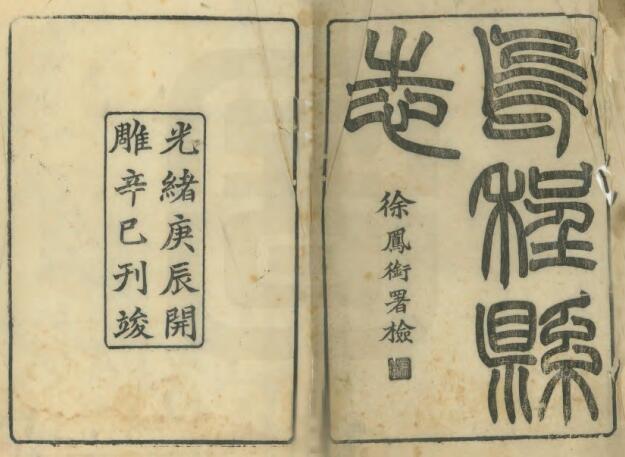 烏程縣
志
徐鳳銜署檢
光緒庚辰開
雕辛巳刊竣